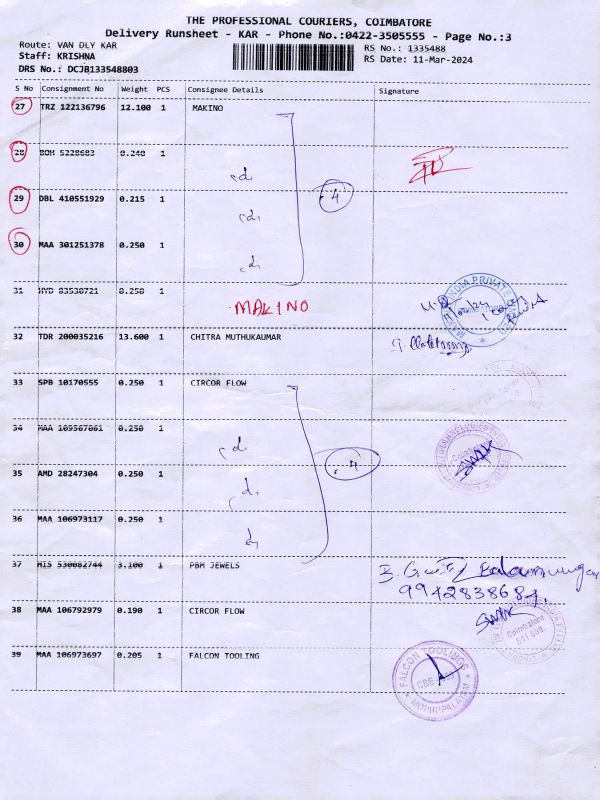 THE PROFESSIONAL COURIERS, COIMBATORE
Delivery Runsheet - KAR - Phone No.:0422-3505555 - Page No.:3
Route: VAN DLY KAR
RS No.: 1335488
Staff: KRISHNA
RS Date: 11-Mar-2024
DRS No.: DCJB133548803
S No Consignment No Weight PCS Consignee Details Signature
27 TRZ 122136796 12.100 1 MAKINO
28 BOM 5228683 0.240 1
29 DBL 410551929 0.215 1
4
30 MAA 301251378 0.250 1
31 HYD 83538721 0.250 1
MAKINO
INDIA PRIVATE
32 TDR 200035216 13.600 1 CHITRA MUTHUKAUMAR
33 SPB 10170555 0.250 1 CIRCOR FLOW
34 MAA 109567061 0.250 1
Coimbatore
35 AMD 28247304 0.250 1
4
36 MAA 106973117 0.250 1
37 MIS 530082744 3.100 1 PBM JEWELS
9942838684
38 MAA 106792979 0.190 1 CIRCOR FLOW
Coimbatore
39 MAA 106973697 0.205 1 FALCON TOOLING
FALCON TOOLINGS
CBE
MOPIRIPALAYAM